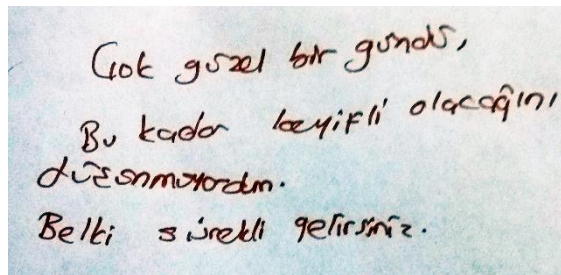 Çok güzel bir gündü,
Bu kadar keyifli olacağını
düşünmüyordum.
Belki sürekli gelirsiniz.